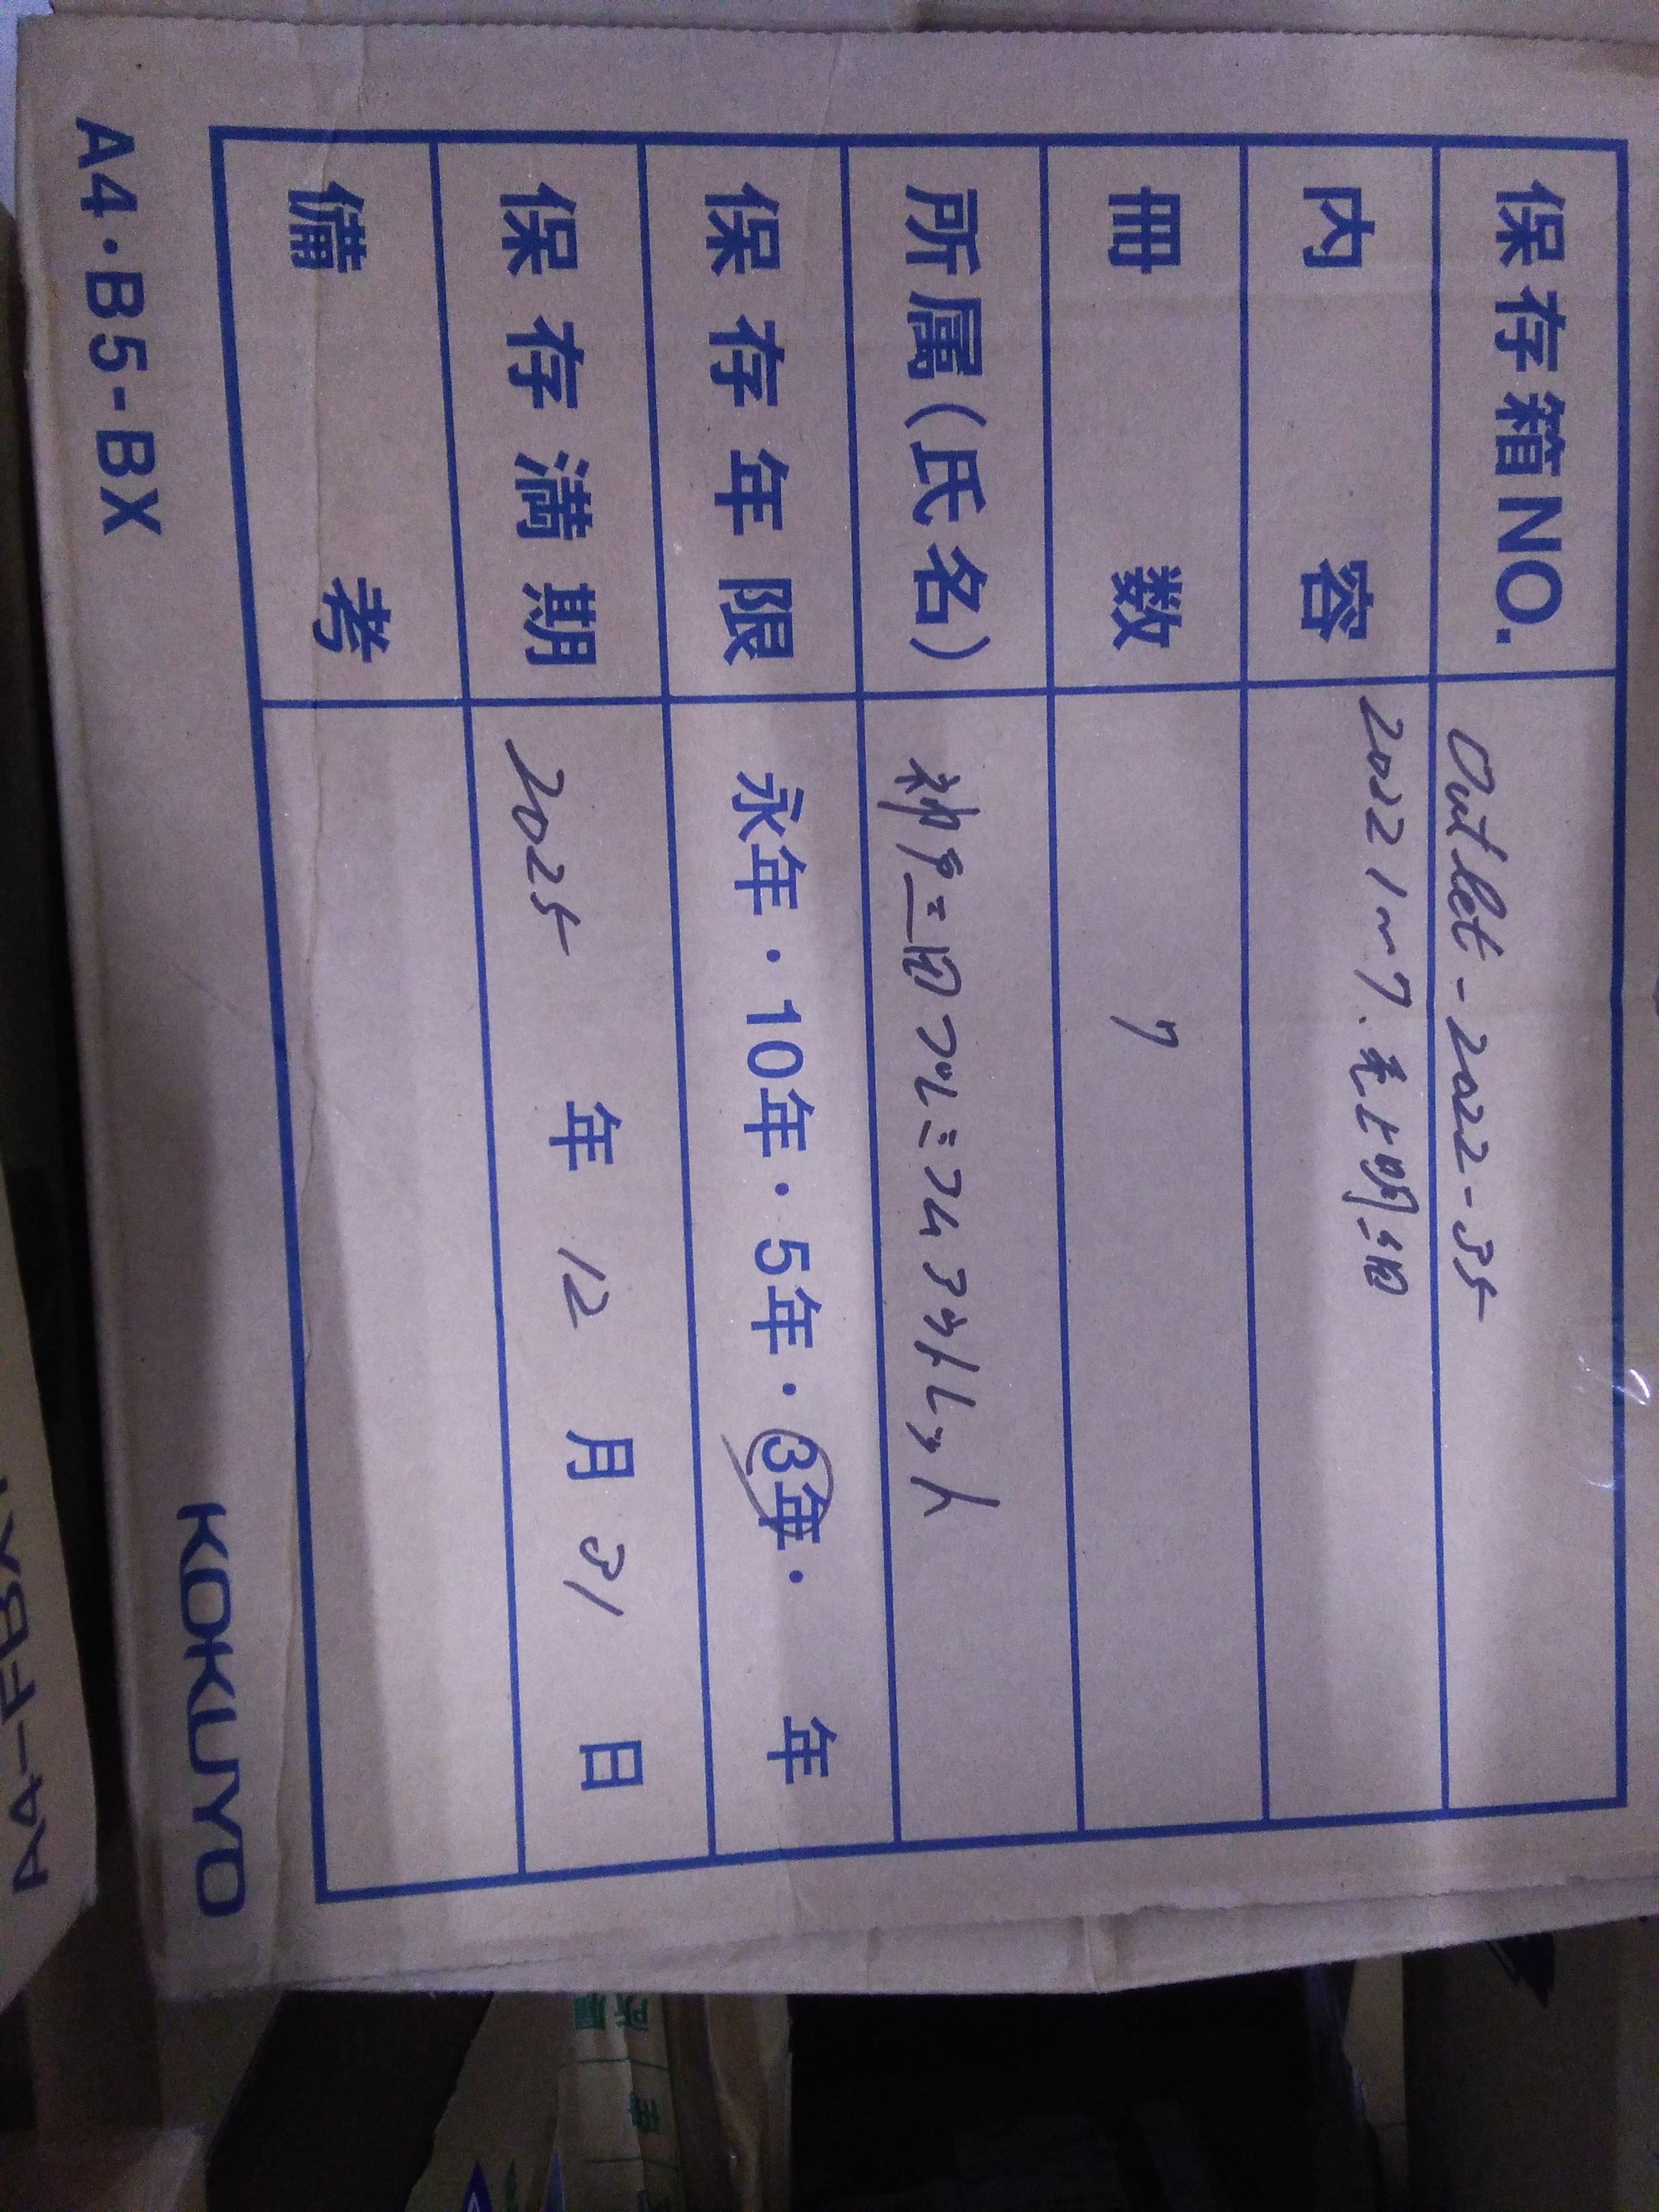 保存箱NO. Outlet-2022-35
内容 2022 1~7.売上明細
冊数 7
所属(氏名) 神戸三田プレミアムアウトレット
保存年限 永年・10年・5年・3年・ 年
保存満期 2025年12月31日
備考
A4・B5-BX KOKUYO